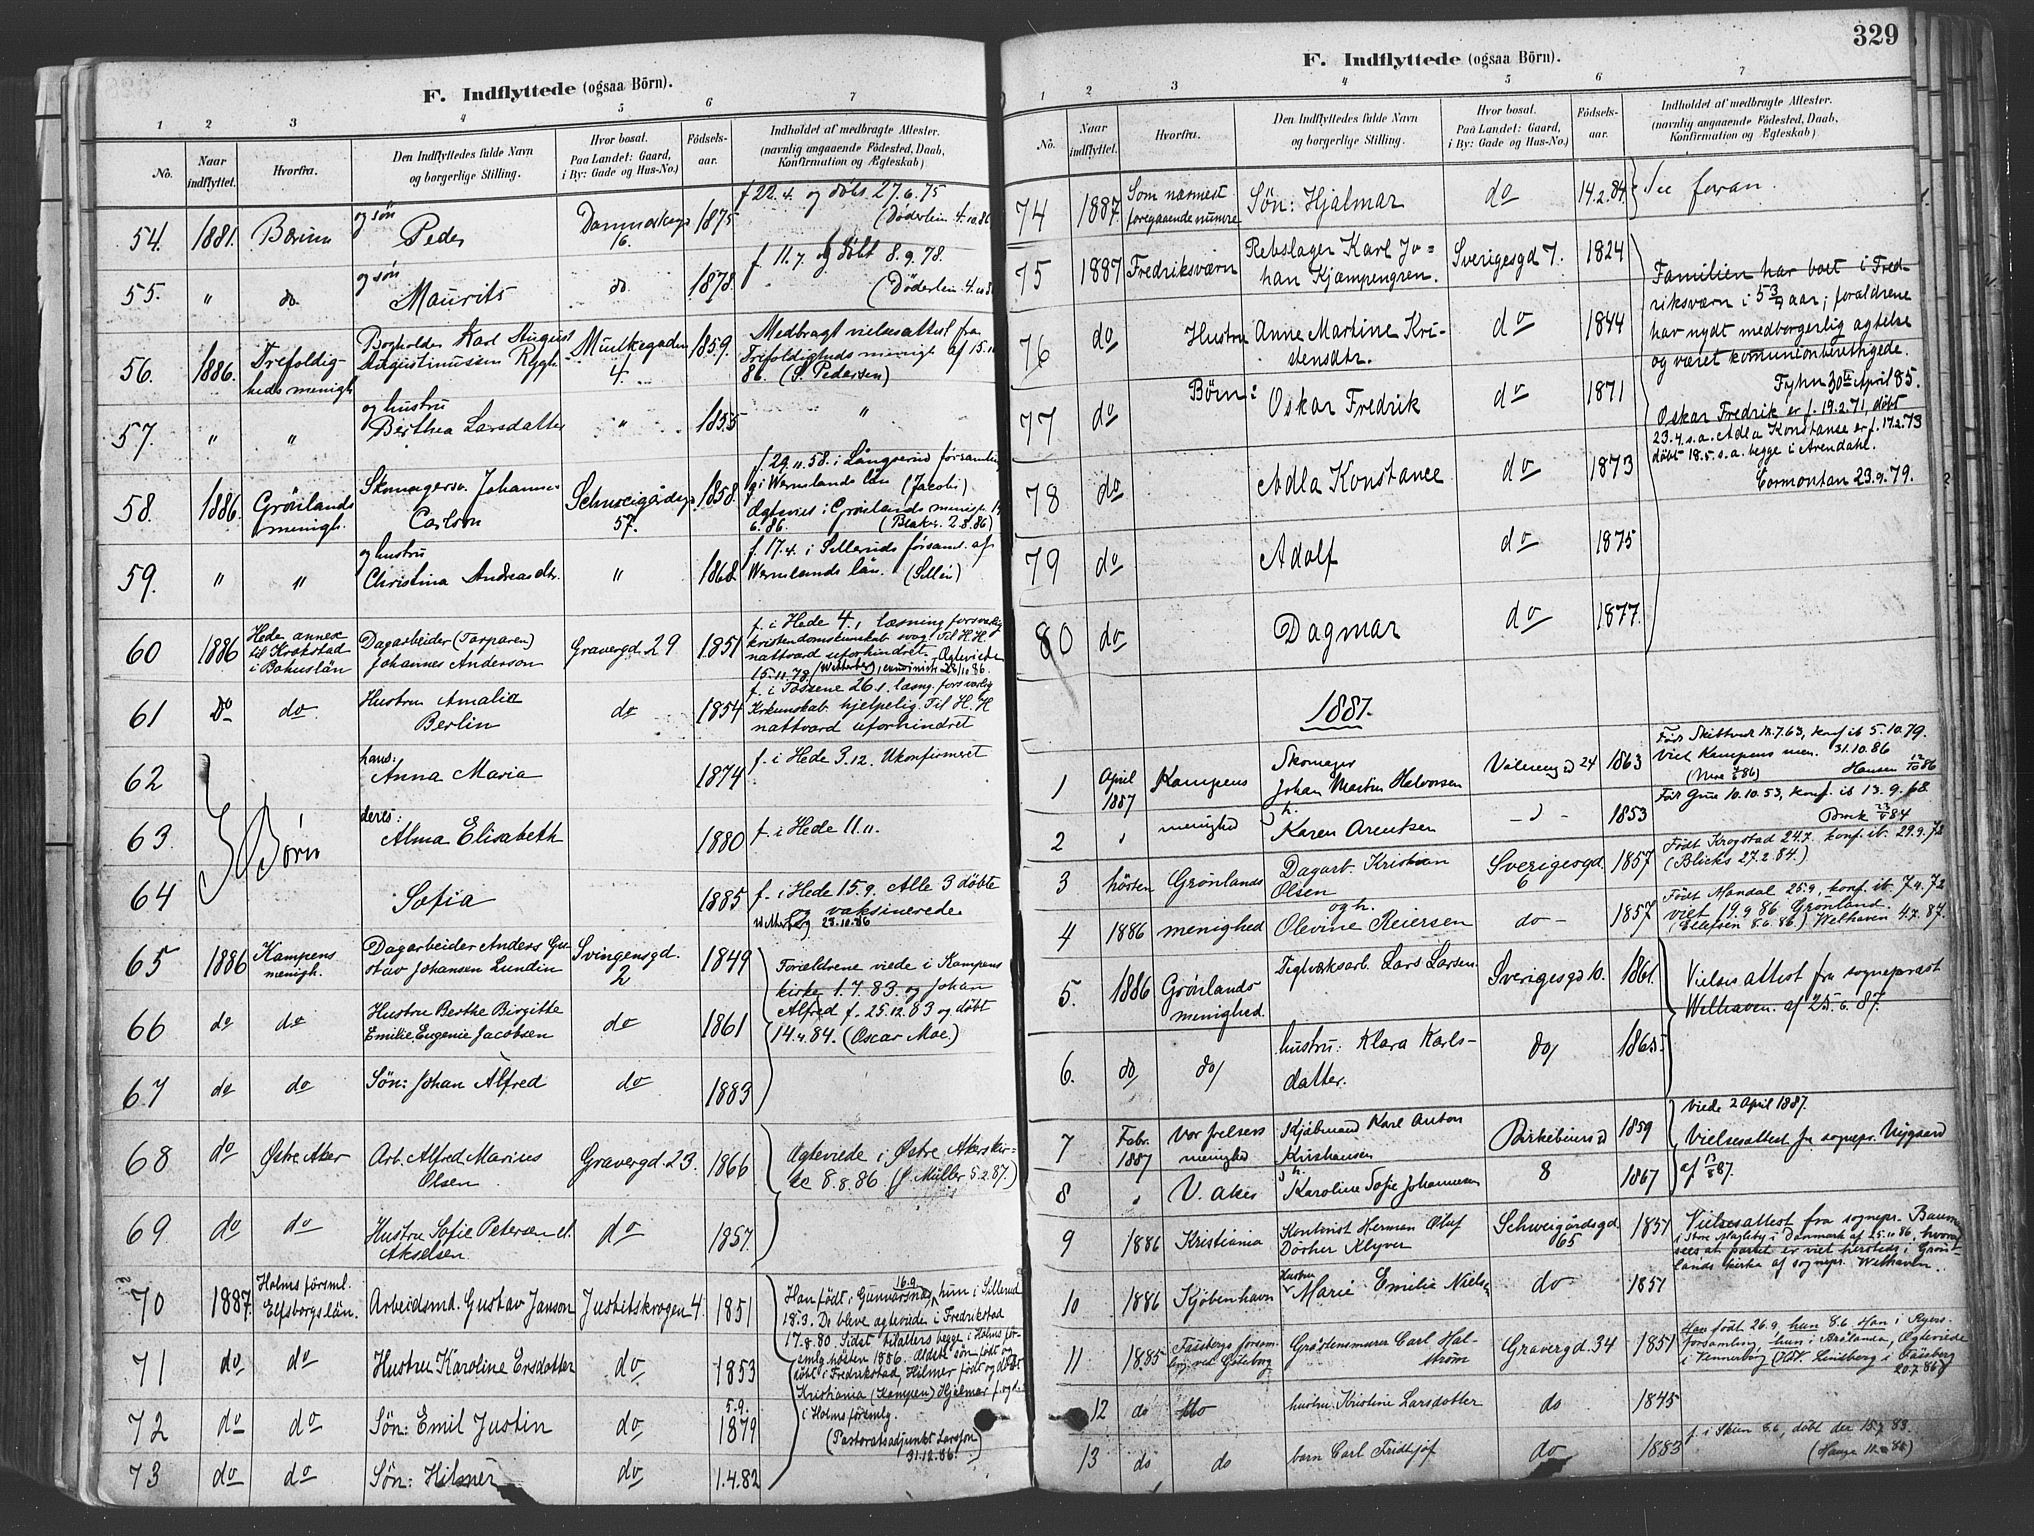 F. Indflyttede (ogsaa Börn).
1 2 3 4 5 6 7
No.
Naar indflyttet.
Hvorfra.
Den Indflyttedes fulde Navn og borgerlige Stilling.
Hvor bosat. Paa Landet: Gaard, i By: Gade og Hus-No.)
Födsels-aar.
Indholdet af medbragte Attester. (navnlig angaaende Födested, Daab, Konfirmation og Ægteskab)
f 22.4. og döbt 27.6.75
54. 1881. Bærum og søn Peder 16. 1875 (Döderlein 4.10.86
f. 11.7 og døbt 8.9.78.
55. " do og søn Maurits do 1878. (Döderlein 4.10.86
56. 1886. Trefoldigheds menigh. Karl August Augustinussen 4. 1859. Medbragt vielsesattest fra
Trefoldigheds menigh. af 15.10
86. (S. Pedersen)
57. " " og hustru Berthea Larsdatter " 1855 "
58. 1886. Grønlands menigh. Johannes Carlson 57. 1858. f. 29.11.58. i
i Wermlands län (Jacobi)
Ægteviet i Grønlands menigh. 14
6.86. (2.8.86)
59. " " og hustru Christina Andreasdtr. " 1868. f. 17.4. i Sillerud församl. af
Wermlands län.
60 1886 Hede annex til Krokstad i Bohuslän Dagarbeider (Torparen) Johannes Anderson Gravergd 29 1851 f. i Hede 4., læsning forsvarlig
kristendomskundskab svag Til H. H.
nattvard uforhindret. Ægteviede
15.11.78
61 Do do. Hustru Amalia Berlin do 1854 f. i Tossene 26.1. læsng. forsvarlig
hjelpelig. Til H. H
nattvard uforhindret
62 hans: Anna Maria 1874 f. i Hede 3.12. Ukonfirmeret
63. Børn deres: Alma Elisabeth 1880 f. i Hede 11.11.
64 Sofia 1885 f. i Hede 15.9. Alle 3 döbte
og vaksinerede
65 1886 Kampens menigh. Dagarbeider Anders Gustav Johansen Lundin Svingensgd. 2 1849 Forældrene viede i Kampens
kirke 1.7.83 og Johan
66 do do Hustru Berthe Birgitte Emilie Eugenie Jacobsen do 1861 Alfred f. 25.12.83 og döbt
14.4.84. (Oscar Moe.)
67 do do Søn: Johan Alfred do 1883
68 do Østre Aker Arb. Alfred Marius Olsen Gravergd. 23. 1866 Ægteviede i Østre Akers kirke
8.8.86 (J. Müller 5.2.87.)
69 do do Hustru Sofie Petersen el. Akselsen do 1857.
70 1887. Holms försml. Elfsborgs län. Arbeidsmd. Gustav Janson Justitskrogen 4. 1851 Han födt i Gunnarsnäs 16.9. hun i Sillerud
18.3. De bleve ægteviede i Fredrikstad
17.8.80.
71 do do Hustru Karoline Ersdotter do 1853 Holms försmlg hösten 1886. Ældste søn födt og
döbt i Fredrikstad, Hilmer födt og döbt
Kristiania (Kampen) Hjalmar f. og d.
72 do do Søn: Emil Justin do 5.9. 1879 i Holms försmlg.
(Pastoratsadjunkt Larsson)
31.12.86.
73 do do Søn: Hilmer do 1.4.82
329
F. Indflyttede (ogsaa Börn).
1 2 3 4 5 6 7
No.
Naar indflyttet.
Hvorfra.
Den Indflyttedes fulde Navn og borgerlige Stilling.
Hvor bosat. Paa Landet: Gaard, i By: Gade og Hus-No.)
Födsels-aar.
Indholdet af medbragte Attester. (navnlig angaaende Födested, Daab, Konfirmation og Ægteskab)
74 1887. Som nærmest foregaaende numre Søn: Hjalmar do 14.2.84. See foran.
75 1887 Fredriksværn Rebslager Karl Johan Kjæmpengren. Sverigesgd 7. 1824 Familien har boet i Fred-
riksværn i 5 3/4 aar; forældrene
76 do Hustru Anne Martine Kristensdtr. do 1844 har nydt medborgerlig agtelse
og været kommunionberettigede.
Fyhn 30te April 85.
77 do Børn: Oskar Fredrik do 1871 Oskar Fredrik er f. 19.2.71, döbt
23.4. s.a. Adla Konstanse er f. 17.2.73
döbt 18.5. s.a. begge i Arendahl.
78 do Adla Konstance do 1873 Cormontan 23.9.79.
79 do Adolf do 1875
80 do Dagmar do 1877.
1887.
1 April 1887 Kampens menighed Skomager Johan Martin Halvorsen 24 1863 Född 12.7.63, konf ib 5.10.79.
Viet Kampens men. 31.10.86
Hansen
2 h. Karen Arentsen 1853 Född Grue 10.10.53, konf. ib 13.9.68.
3 hösten Grønlands Dagarb. Kristian Olsen Sverigesgd. 6 1857 Födt Krogstad 24.7. konf. ib. 29.9.72
(Blicks 27.2.84.)
4 1886 menighed og h. Olevine Reiersen do - 1857 Födt Mandal 25.9, konf. ib. 7.4.72
viet 19.9.86 Grønland.
(Ellefsen 8.6.86.) Welhaven 4.7.87.
5. 1886 Grønlands menighed. Teglværksarb. Lars Larsen. Sverigesgd 10. 1861. Vielses attest fra sogneprest
Welhaven. af 25.6.87.
6. do do hustru: Klara Karlsdatter. do 1860.
7 Febr. 1887 Vor frelsers menighed Karl Anton Kristiansen Birkebeinergd 8 1859 Viede 2 April 1887.
Vielsesattest fr sognepr. Nygaard
8 V. Aker h. Karoline Sofie Johannesen 1867
9 1886 Kristiania Kontorist Herman Oluf Klyver Schweigårdsgd 65 1851 Vielsesattest fra sognepr.
i Store Magleby i Danmark af 25.10.86, hvoraf
sees at parret er viet hersteds i Grøn-
lands kirke af sognepr. Welhaven.
10 1886 Kjøbenhavn Hustru Marie Emilie Nielsen do 1851
11 1885 Gråstensmurer Carl Hallström Gravergd. 34 1851 Han födt 26.9. hun 8.6. Han i Ryers
forsamling, hun i Brålanda, Ægteviede
i Vennersborg Lindberg i
20.7.86)
12 do do hustru Kristine Larsdotter do 1845
13 do do barn Carl Fridtjof do 1883 f. i Skien 8.6, döbt der 15.7.83.